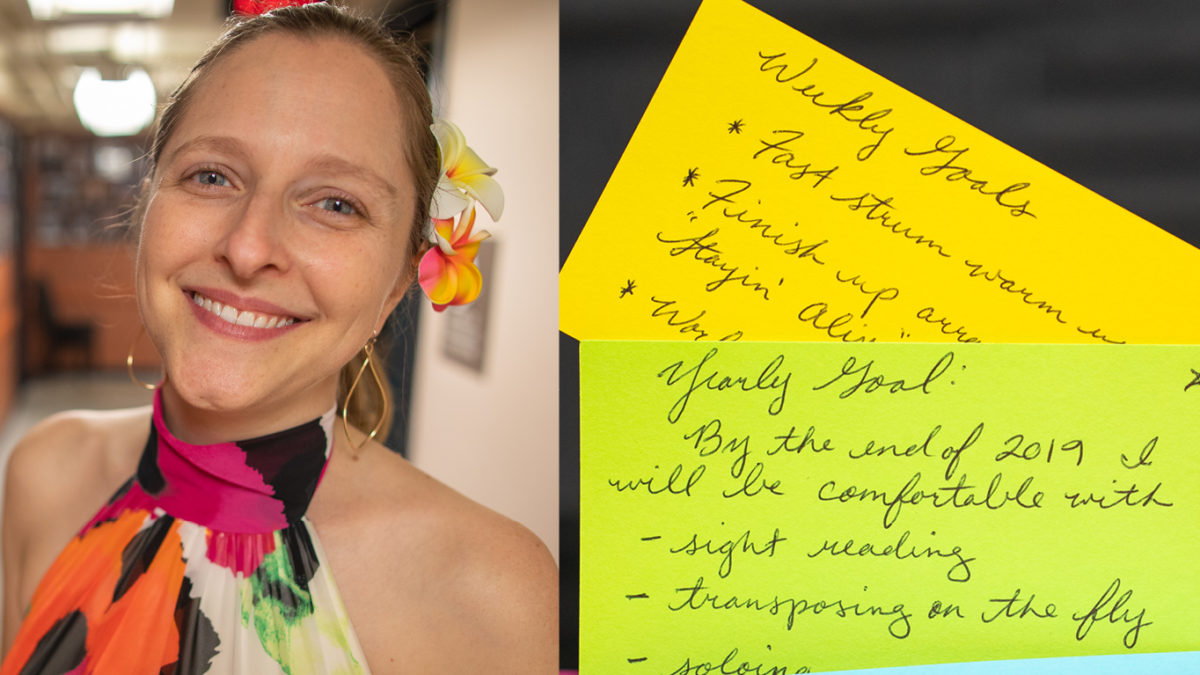 Weekly Goals
* Fast strum warm u
* Finish up arra
"Stayin' Aliv"
* Work
Yearly Goal:
By the end of 2019 I
will be comfortable with
- sight reading
- transposing on the fly
- soloing